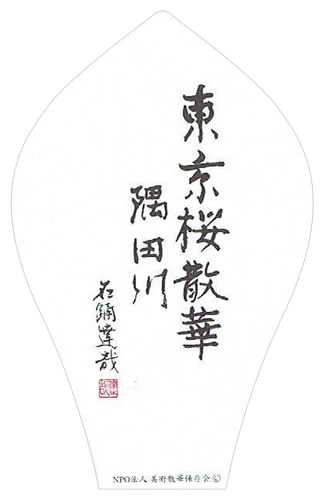 東京桜散華
隅田川
石踊達哉
NPO法人 美術散華保存会 ©